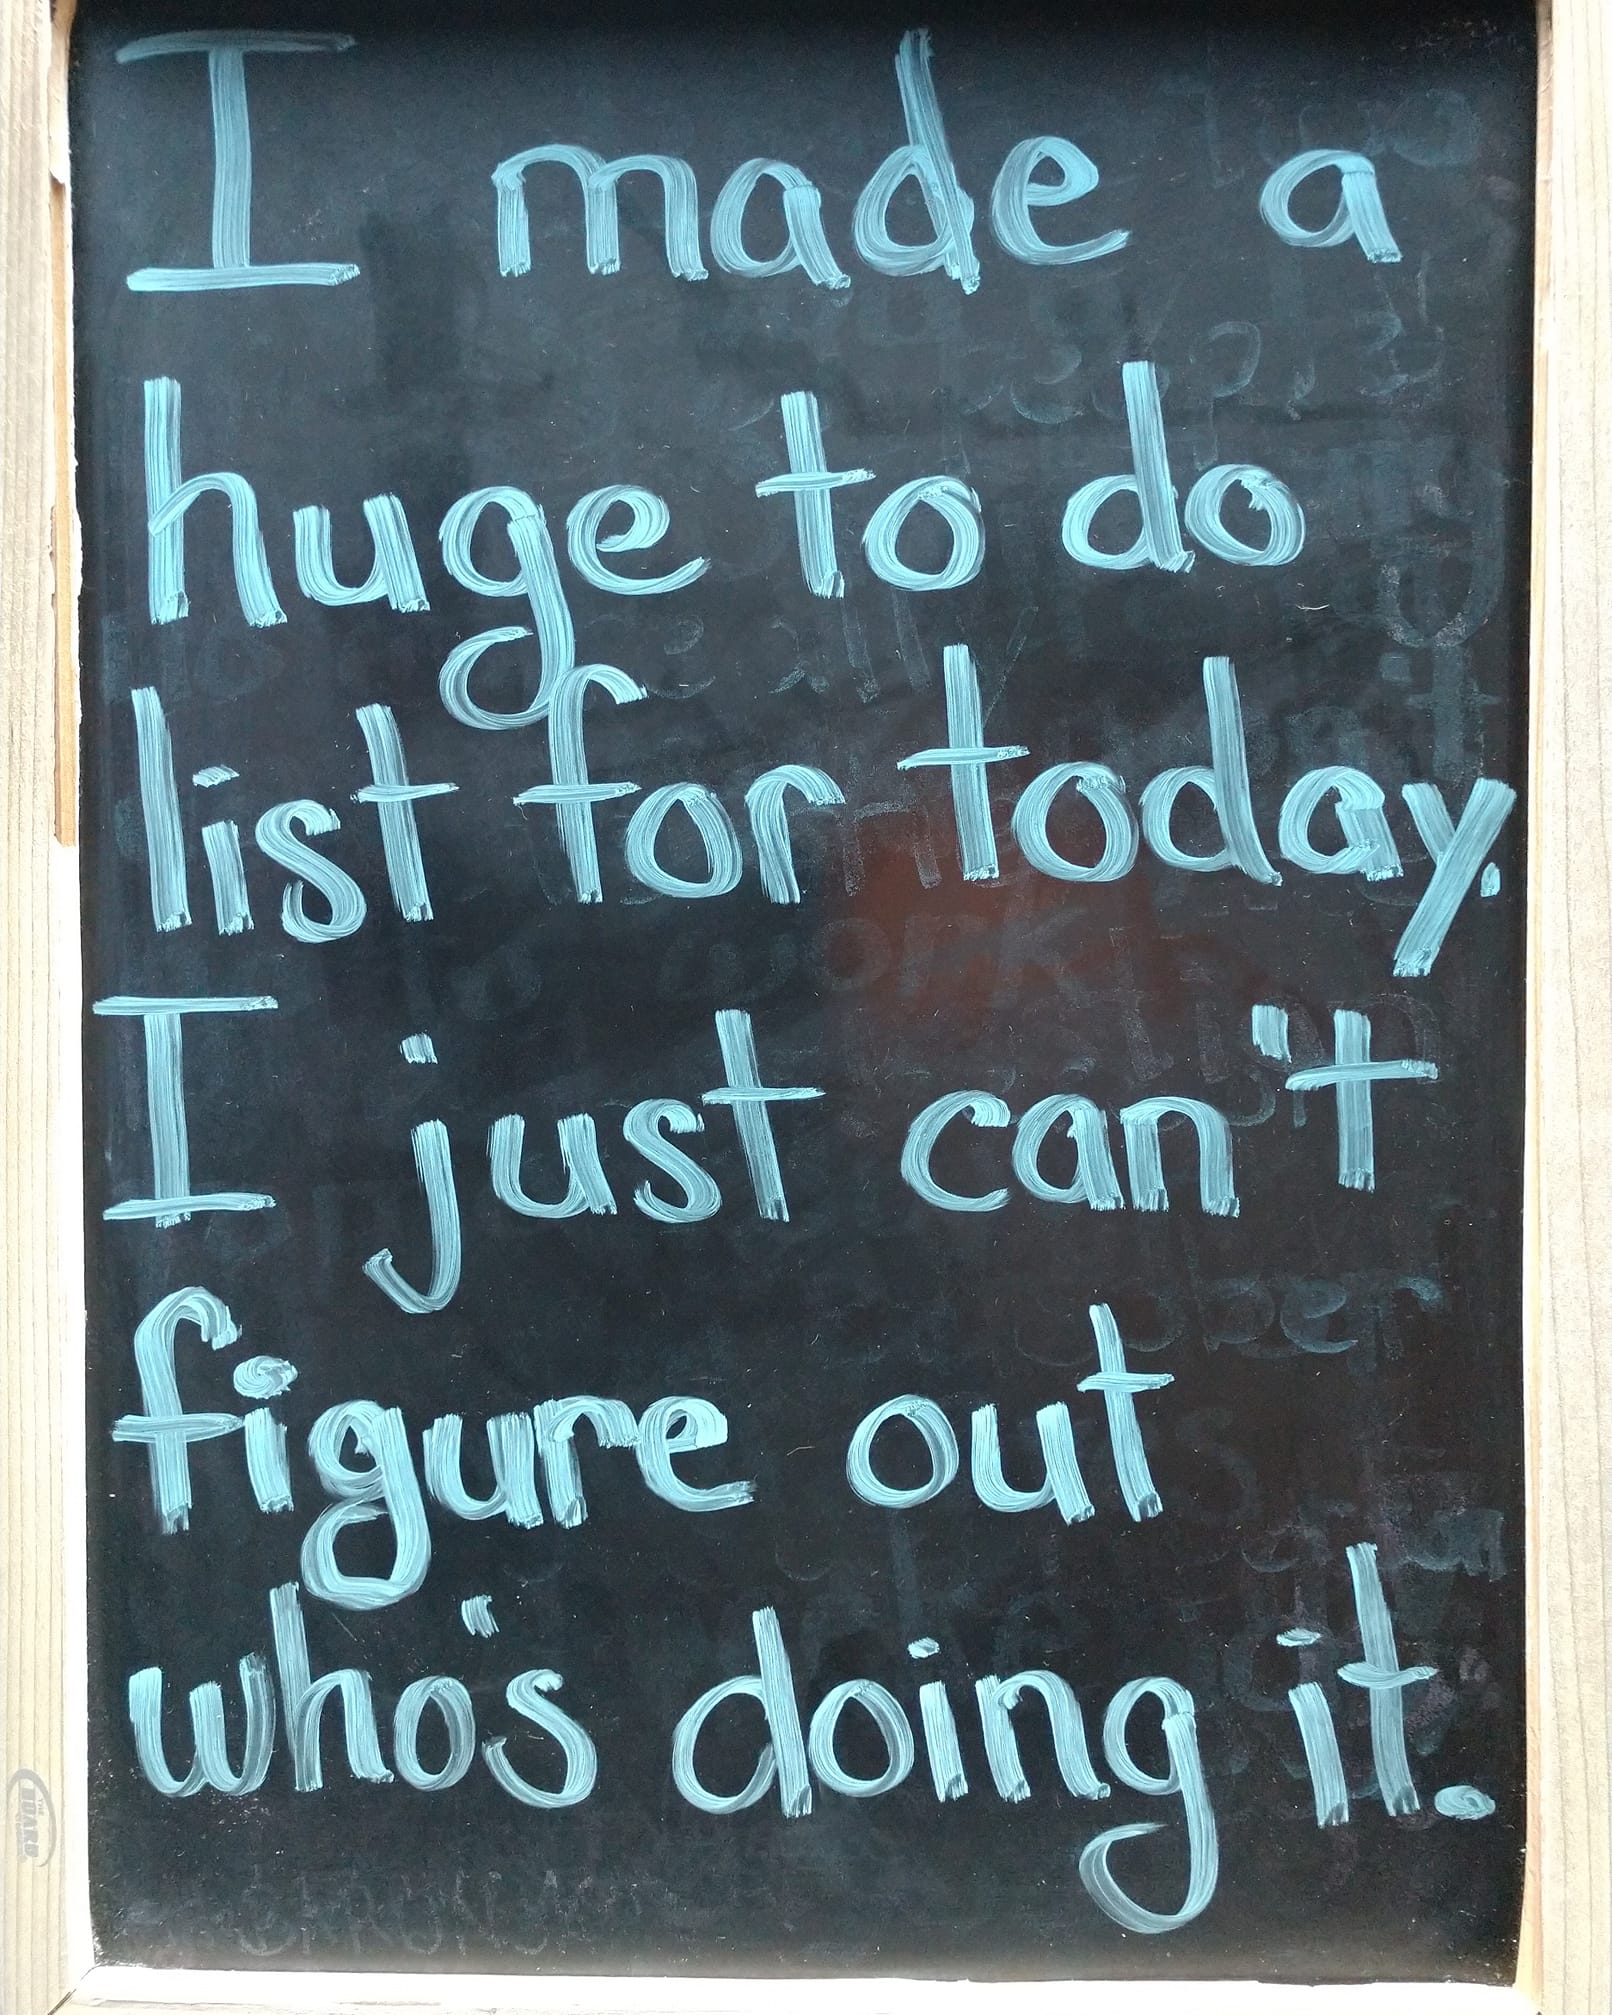 I made a
huge to do
list for today.
I just can't
figure out
who's doing it.